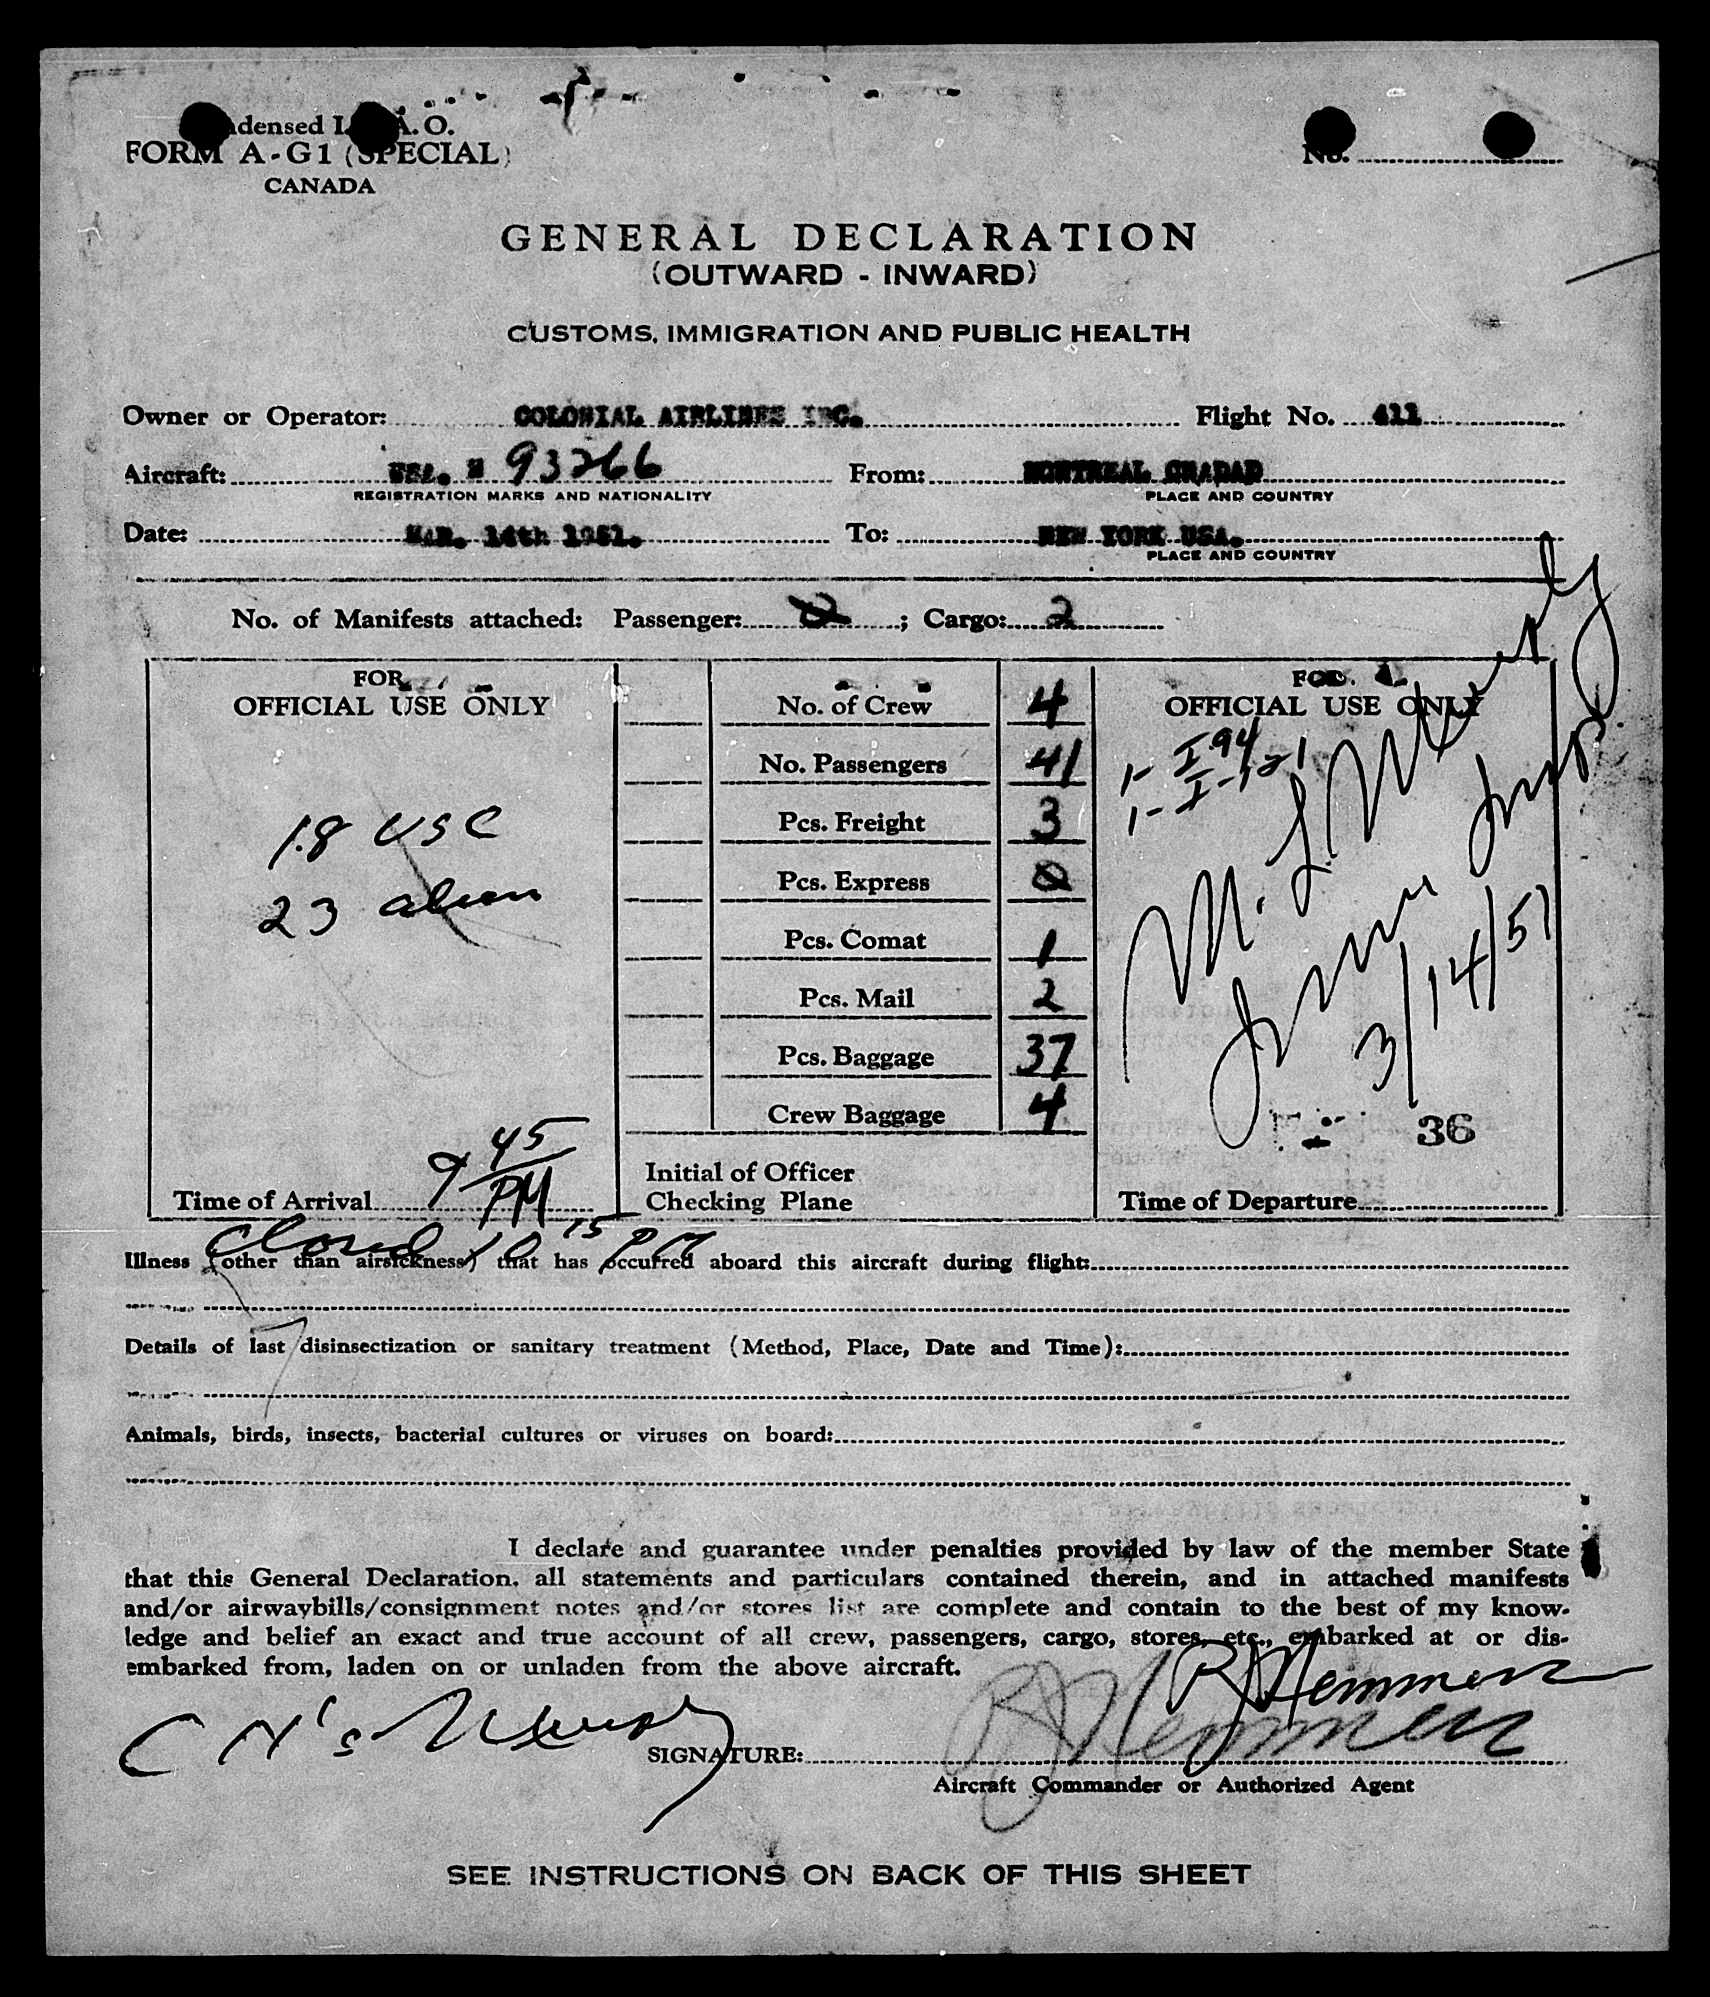 Condensed I.C.A.O.
FORM A-G1 (SPECIAL)
CANADA
No.
GENERAL DECLARATION
(OUTWARD - INWARD)
CUSTOMS, IMMIGRATION AND PUBLIC HEALTH
Owner or Operator: COLONIAL AIRLINES INC. Flight No. 411
Aircraft: USA. N 93266 From: MONTREAL CNADAD
REGISTRATION MARKS AND NATIONALITY PLACE AND COUNTRY
Date: MAR. 14th 1951. To: NEW YORK USA.
PLACE AND COUNTRY
No. of Manifests attached: Passenger: ; Cargo: 2
FOR
OFFICIAL USE ONLY
18 USC
23 alien
Time of Arrival 9 45 PM
No. of Crew 4
No. Passengers 41
Pcs. Freight 3
Pcs. Express 0
Pcs. Comat 1
Pcs. Mail 2
Pcs. Baggage 37
Crew Baggage 4
Initial of Officer
Checking Plane
FOR
OFFICIAL USE ONLY
1- I 94
1- I-121
M. L.
Imm Insp.
3/14/51
36
Time of Departure
Closed 10 15 PM
Illness (other than airsickness) that has occurred aboard this aircraft during flight:
Details of last disinsectization or sanitary treatment (Method, Place, Date and Time):
Animals, birds, insects, bacterial cultures or viruses on board:
I declare and guarantee under penalties provided by law of the member State
that this General Declaration, all statements and particulars contained therein, and in attached manifests
and/or airwaybills/consignment notes and/or stores list are complete and contain to the best of my know-
ledge and belief an exact and true account of all crew, passengers, cargo, stores, etc., embarked at or dis-
embarked from, laden on or unladen from the above aircraft.
SIGNATURE:
Aircraft Commander or Authorized Agent
SEE INSTRUCTIONS ON BACK OF THIS SHEET